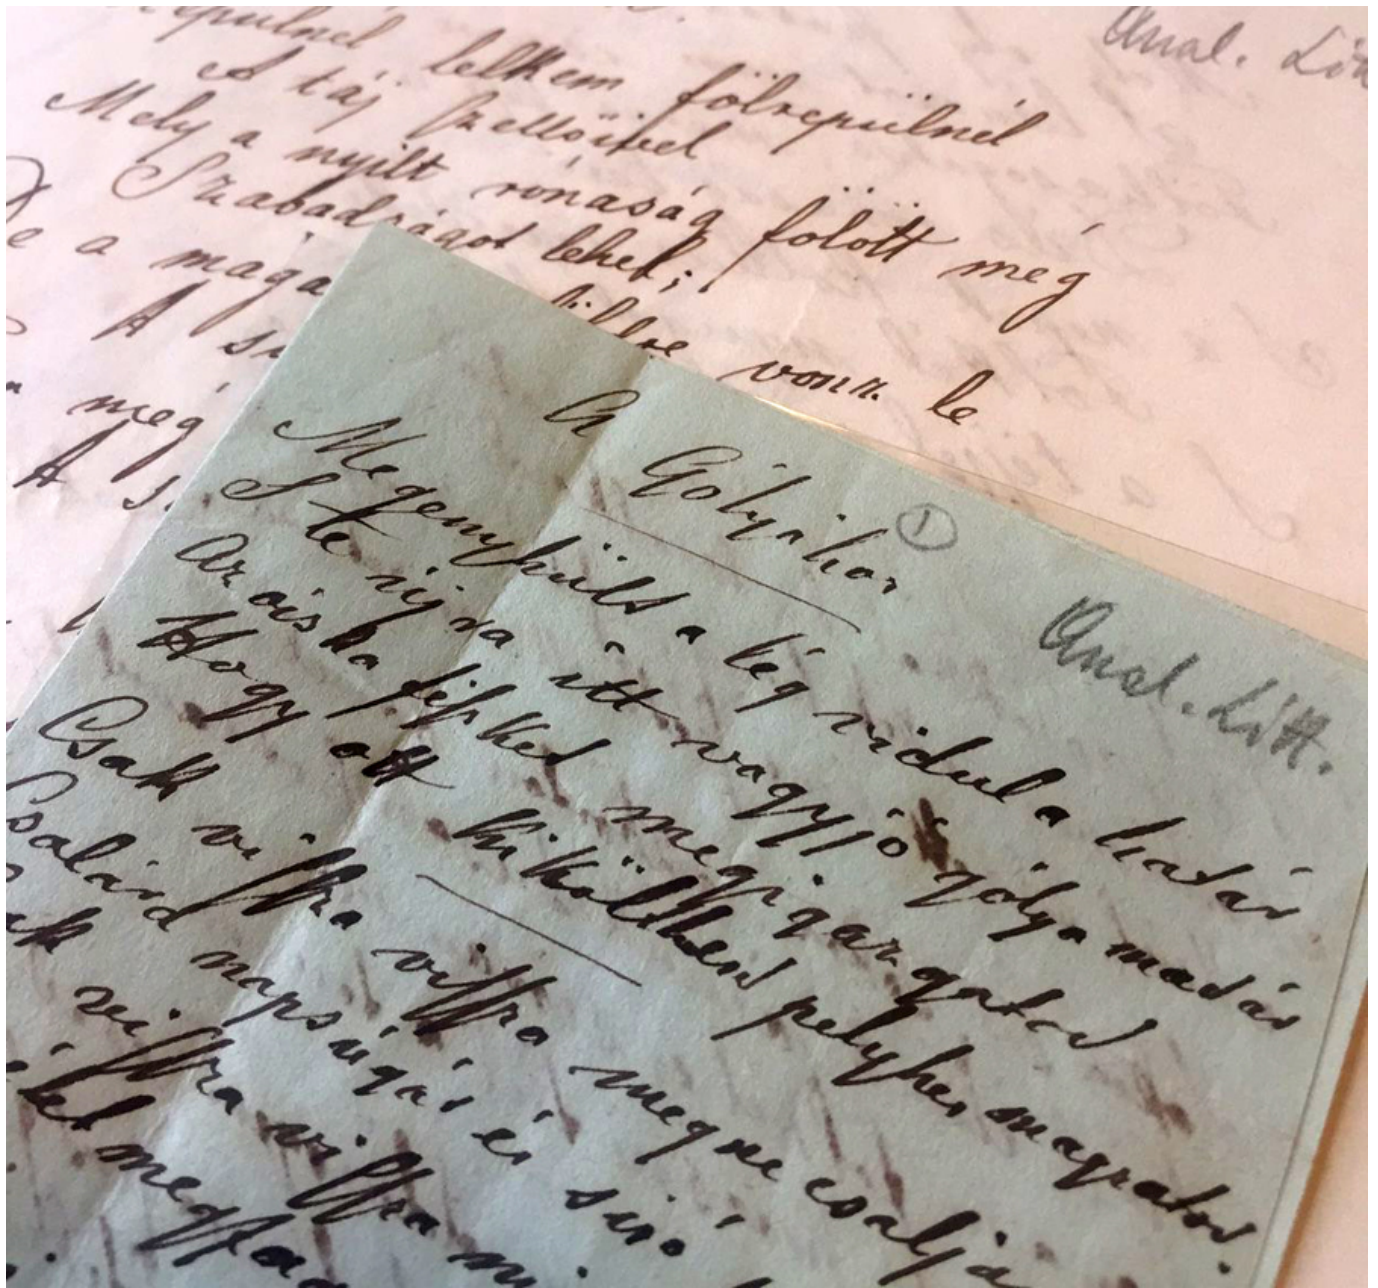 Anal. Litt
repülnél lelkem fölrepülnél
A táj szellőivel
Mely a nyilt rónaság fölött még
Szabadságot lehel;
De a maga földre vonz le
A sú
még
A s
A Gólyához
1
Anal. Litt.
Megenyhült a lég vidul a határ
S te újra itt vagy jó gólya madár
Az ócska fészket megigazgatod
Hogy ott kikölthesd pelyhes magzatod.
Csak vissza vissza megne csalja
Csalárd napsugár és siró
ak vissza vissza ni
élet megfa